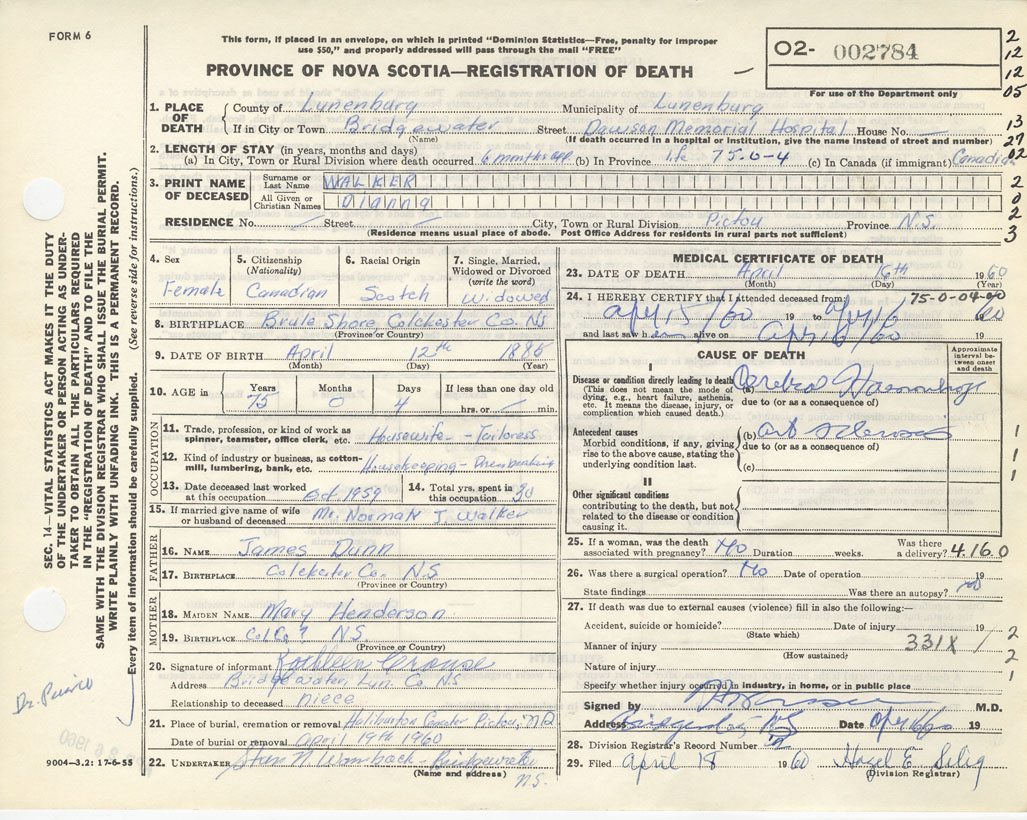 FORM 6
This form, if placed in an envelope, on which is printed "Dominion Statistics—Free, penalty for improper
use $50," and properly addressed will pass through the mail "FREE"
PROVINCE OF NOVA SCOTIA—REGISTRATION OF DEATH
O2- 002784
For use of the Department only
2
12
12
05
13
27
02
2
0
2
3
1. PLACE OF DEATH
County of Lunenburg Municipality of Lunenburg
If in City or Town Bridgewater Street Dawson Memorial Hospital House No. —
(Name) (If death occurred in a hospital or institution, give the name instead of street and number)
2. LENGTH OF STAY (in years, months and days)
(a) In City, Town or Rural Division where death occurred 6 months app. (b) In Province life 75-0-4 (c) In Canada (if immigrant) Canadian
3. PRINT NAME OF DECEASED
Surname or Last Name WALKER
All Given or Christian Names
RESIDENCE No. — Street — City, Town or Rural Division Pictou Province N.S.
(Residence means usual place of abode. Post Office Address for residents in rural parts not sufficient)
4. Sex Female
5. Citizenship (Nationality) Canadian
6. Racial Origin Scotch
7. Single, Married, Widowed or Divorced (write the word) Widowed
8. BIRTHPLACE Brule Shore, Colchester Co. NS
(Province or Country)
9. DATE OF BIRTH April 12th 1885
(Month) (Day) (Year)
10. AGE in Years 75 Months 0 Days 4 If less than one day old hrs. or — min.
OCCUPATION
11. Trade, profession, or kind of work as spinner, teamster, office clerk, etc. Housewife - Tailoress
12. Kind of industry or business, as cotton-mill, lumbering, bank, etc. Housekeeping -
13. Date deceased last worked at this occupation Oct. 1959
14. Total yrs. spent in this occupation
15. If married give name of wife or husband of deceased Mr. Norman J. Walker
FATHER
16. NAME James Dunn
17. BIRTHPLACE Colchester Co. N.S.
(Province or Country)
MOTHER
18. MAIDEN NAME Mary Henderson
19. BIRTHPLACE Col Co? N.S.
(Province or Country)
20. Signature of informant Kathleen Crouse
Address Bridgewater, Lun. Co. N.S
Relationship to deceased niece
21. Place of burial, cremation or removal Haliburton Pictou,
Date of burial or removal April 19th 1960
22. UNDERTAKER Wamback - Bridgewater
(Name and address) N.S.
MEDICAL CERTIFICATE OF DEATH
23. DATE OF DEATH April 16th 1960
(Month) (Day) (Year)
24. I HEREBY CERTIFY that I attended deceased from 75-0-04-
Apr 15/60 19 to Apr 16 1960
and last saw h er alive on Apr 16/60 19
CAUSE OF DEATH
Approximate interval between onset and death
I
Disease or condition directly leading to death (a) Cerebral Haemorrhage
(This does not mean the mode of dying, e.g., heart failure, asthenia, etc. It means the disease, injury, or complication which caused death.)
due to (or as a consequence of)
Antecedent causes
Morbid conditions, if any, giving rise to the above cause, stating the underlying condition last.
(b) Art Sclerosis
due to (or as a consequence of)
(c)
1
1
1
II
Other significant conditions
contributing to the death, but not related to the disease or condition causing it.
25. If a woman, was the death associated with pregnancy? No Duration weeks. Was there a delivery? 4.16.0
26. Was there a surgical operation? No Date of operation 19
State findings Was there an autopsy? no
27. If death was due to external causes (violence) fill in also the following:—
Accident, suicide or homicide? Date of injury 19
(State which)
Manner of injury 331X
(How sustained)
Nature of injury
Specify whether injury occurred in industry, in home, or in public place
/ 2
2
1
Signed by M.D.
Address Bridgewater, NS Date Apr 16/60 19
28. Division Registrar's Record Number
29. Filed April 18 1960 Hazel E. Selig
(Division Registrar)
SEC. 14—VITAL STATISTICS ACT MAKES IT THE DUTY
OF THE UNDERTAKER OR PERSON ACTING AS UNDER-
TAKER TO OBTAIN ALL THE PARTICULARS REQUIRED
IN THE "REGISTRATION OF DEATH" AND TO FILE THE
SAME WITH THE DIVISION REGISTRAR WHO SHALL ISSUE THE BURIAL PERMIT.
WRITE PLAINLY WITH UNFADING INK. THIS IS A PERMANENT RECORD.
Every item of information should be carefully supplied. (See reverse side for instructions.)
9004—3.2: 17-6-55